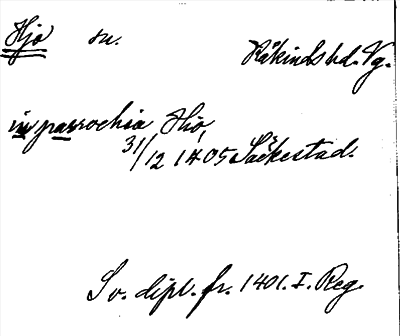 Hjo sn.
Kåkinds hd. Vg.
in parrochia Hio,
31/12 1405 Sackestad.
Sv. dipl. fr. 1401. I. Reg.